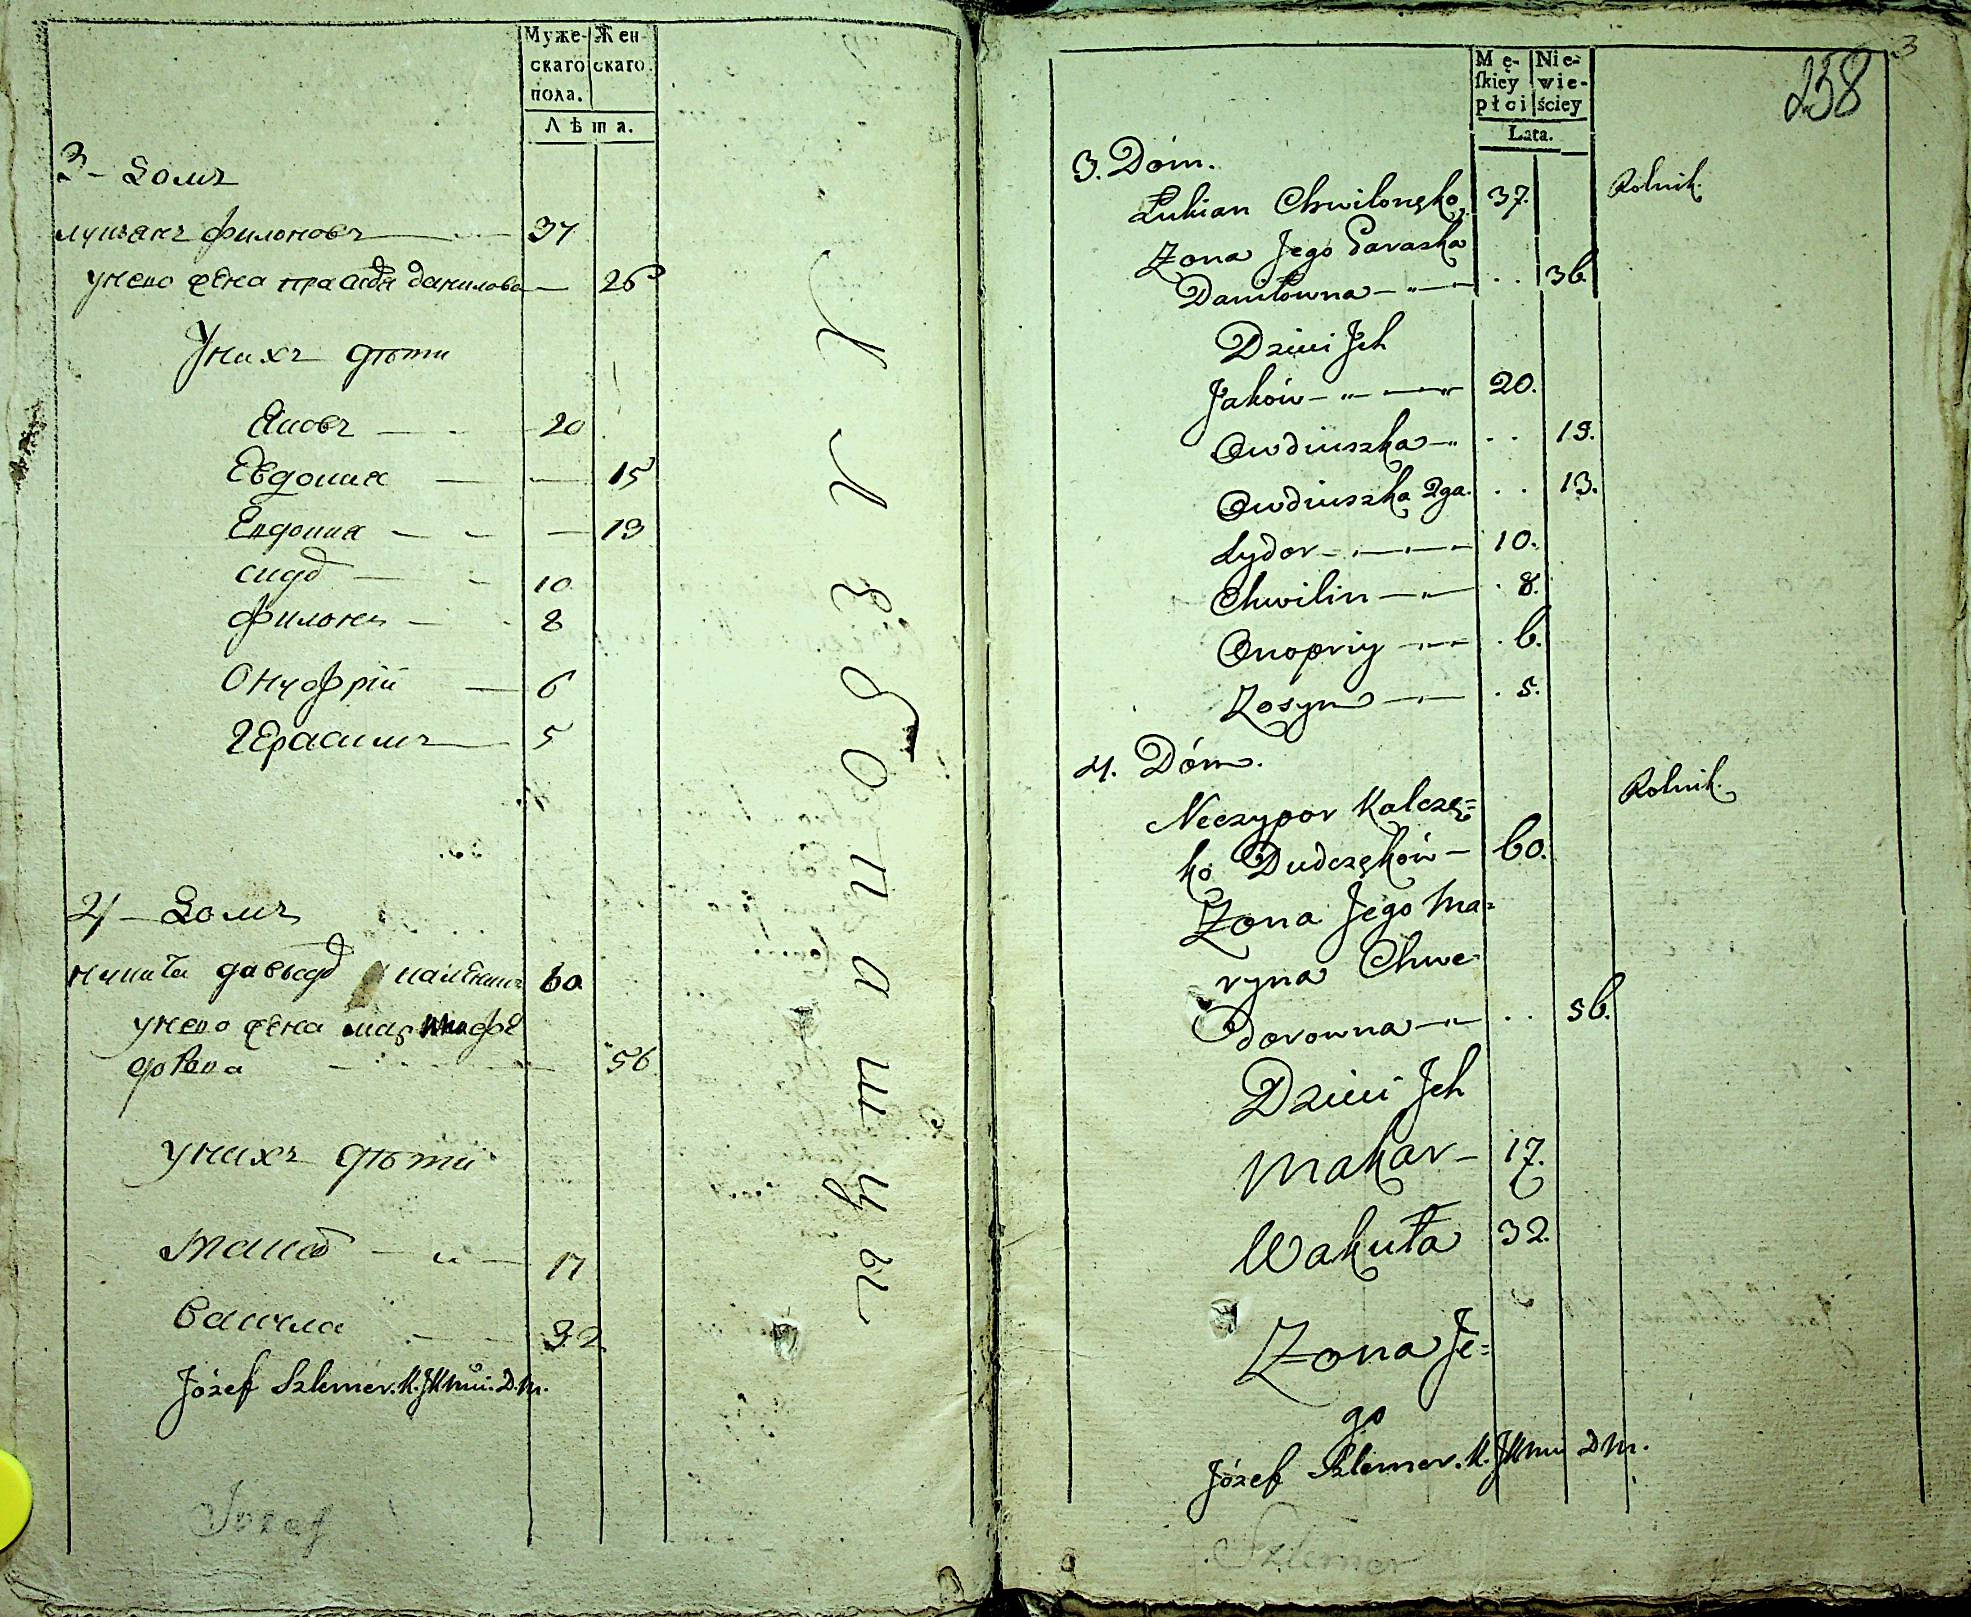 Муже-
скаго
пола.
Жен-
скаго.
Лѣта.
3 - Домъ
лукьянъ филоновъ 37
унево жена праскв данилова — 26
Унихъ дѣти
Яковъ — 20
Евдокия — 15
Евдокия — 13
сидо — 10
филонъ — 8
Онуфрій — 6
Герасимъ — 5
4 - Домъ
60
унево жена
56
унихъ дѣти
Макар — 17
Вакула — 32
Józef Szlemer. K. JKMci. D. M.
Józef
Хлебопашцы
3
258
Mę-
skiey
płci
Nie-
wie-
ściey
Lata.
3. Dóm.
Łukian Chwilonęko 37. Rolnik.
Zona Jego Paraska
Daniłowna — . . 36.
Dzieci Jch
Jaków — 20.
Owdiuszka — . . 15.
Owdiuszka 2ga. . . 13.
Sydor — 10.
Chwilin — . 8.
Onopriy — . 6.
Zosym — . 5.
4. Dóm.
Neczypor Kalczę= Rolnik.
ko Dudczęków — 60.
Zona Jego Ma=
ryna Chwe
dorowna — . . 56.
Dzieci Jch
Makar — 17.
Wakuła 32.
Zona Je=
go
Józef Szlemer. K. JKMci D M.
Szlemer